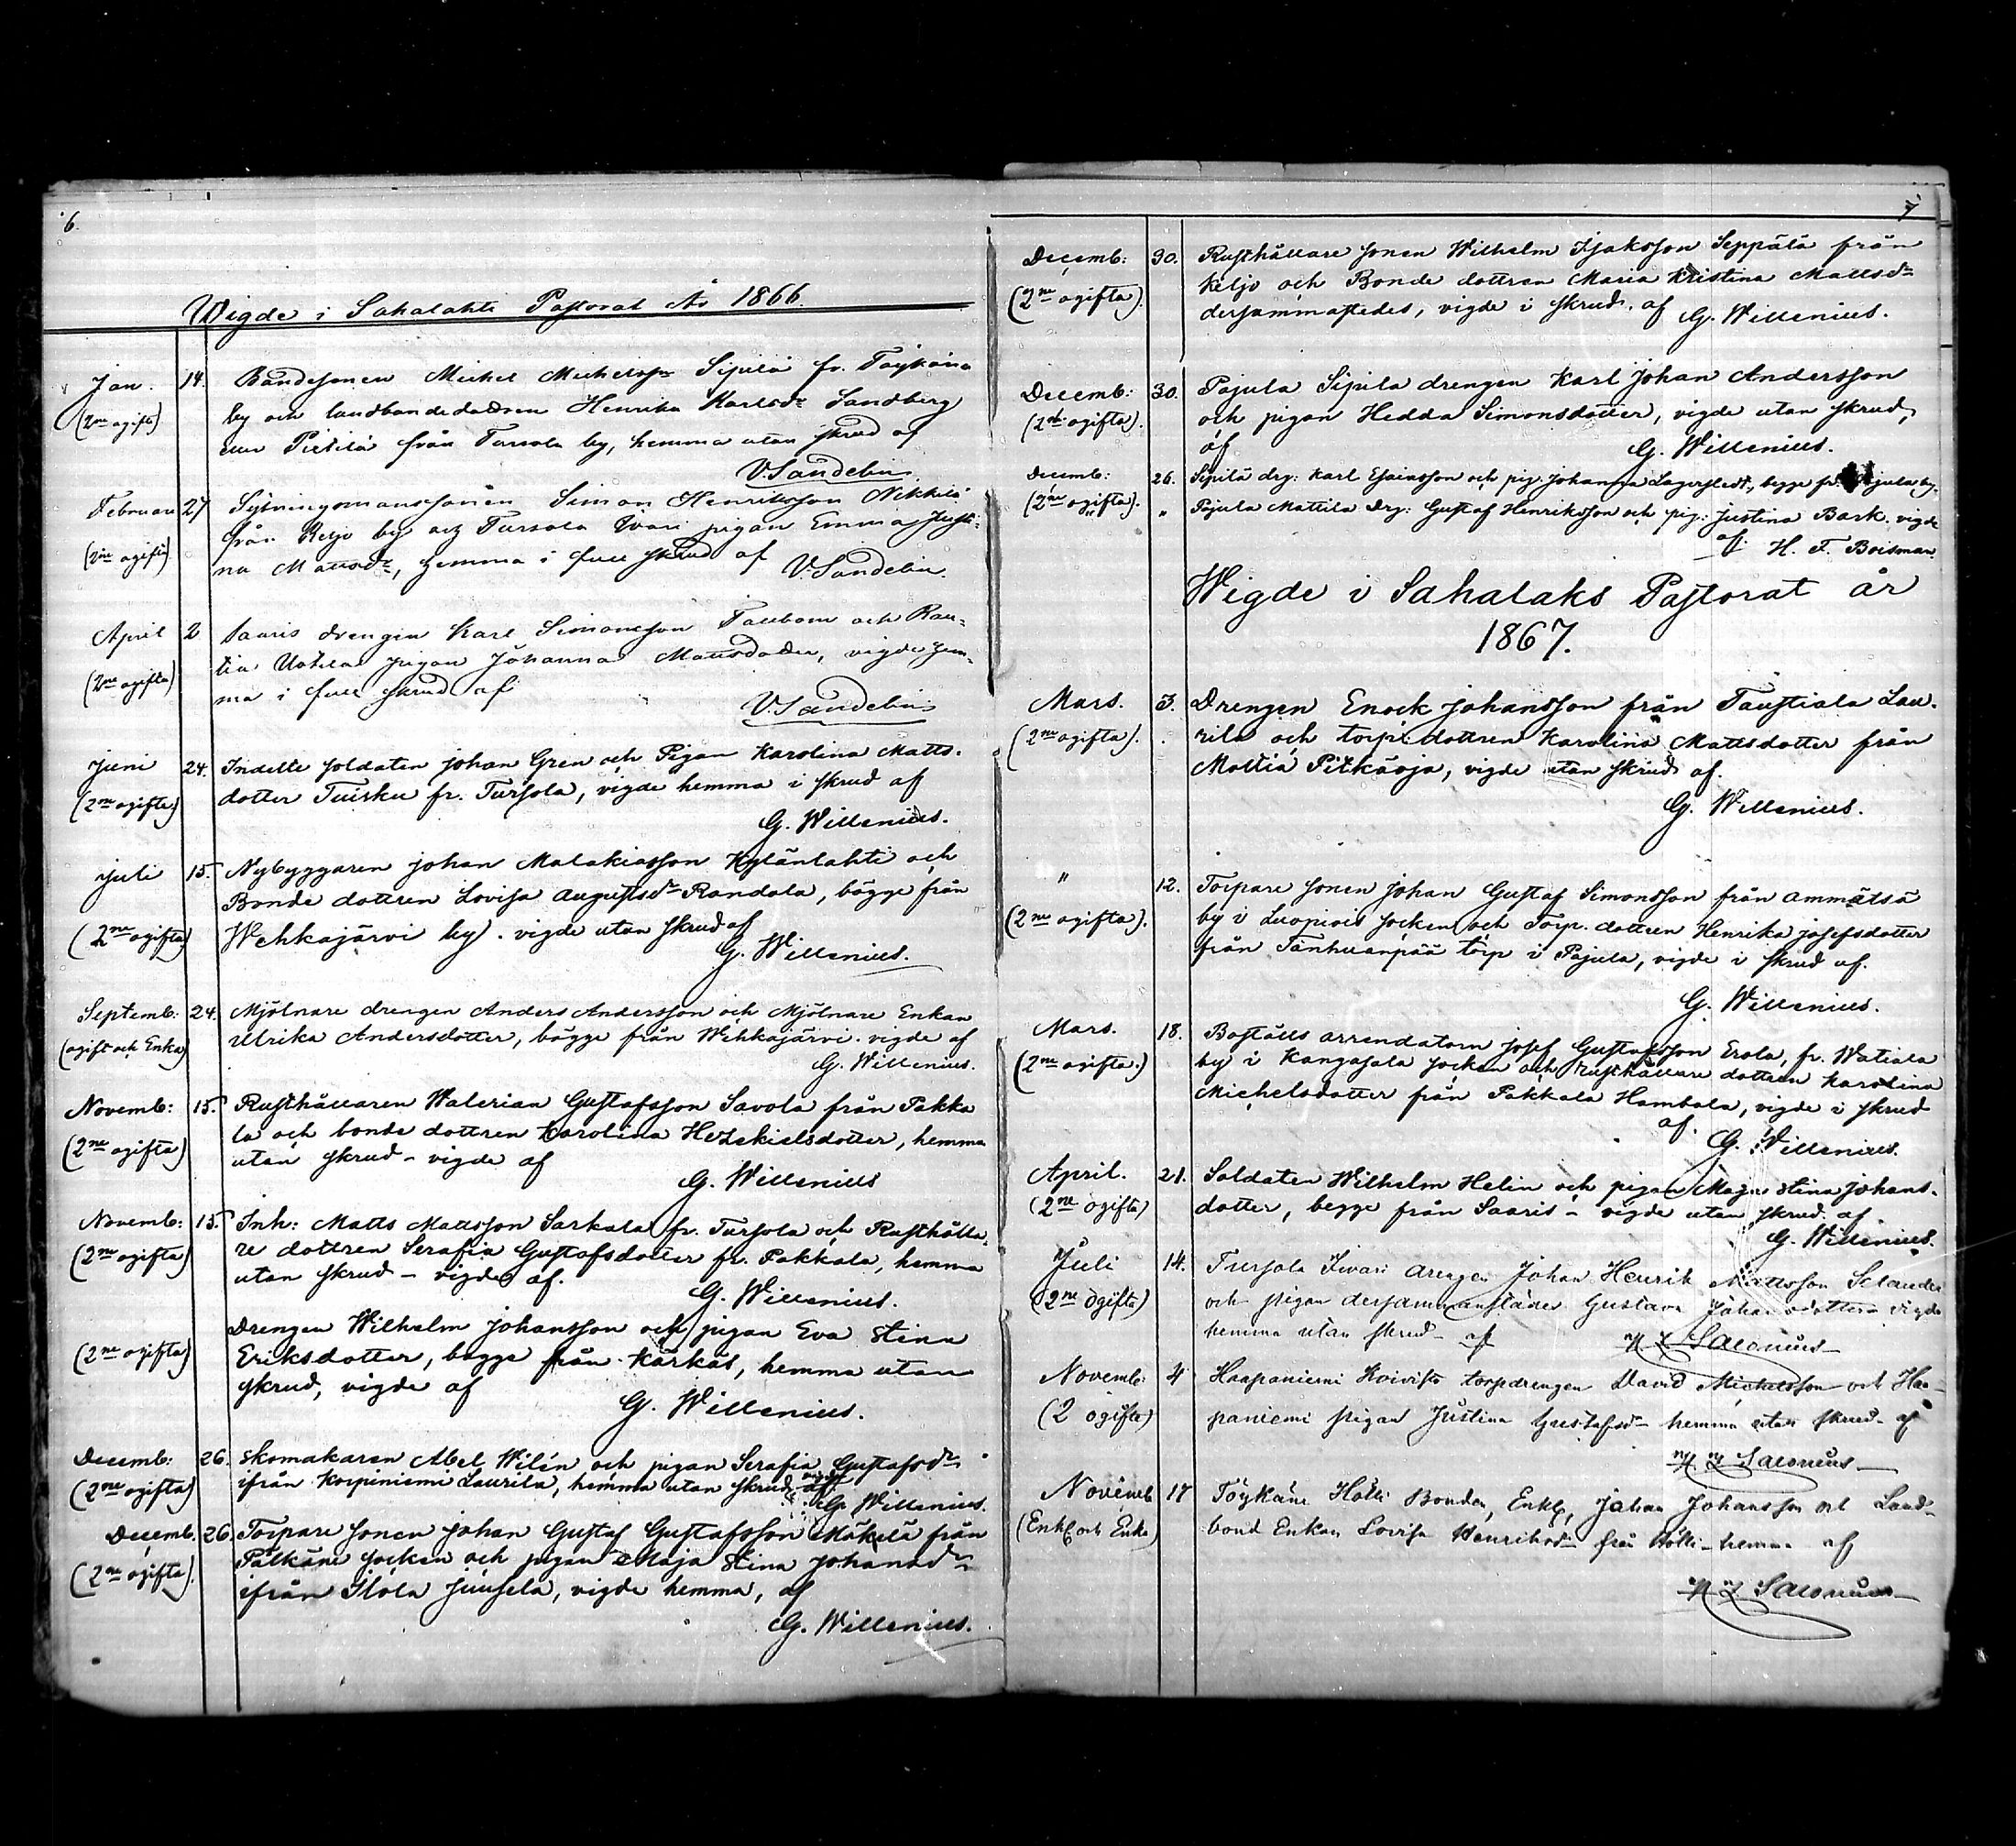 6.
Wigde i Sahalahti Pastorat År 1866.
Jan. 14. Bondesonen Michel Michelss: Sipilä fr. Töykänä
(2ne ogifta) by och landbondedottren Henrika Karlsdr Sandberg
eller Pietilä från Tursola by, hemma utan skrud af
V. Sandelin
Februari 27 Sytningsmanssonen Simon Henriksson Nikkilä
från Keljo by och Tursola Iivari pigan Emma Justi-
(2ne ogifta) na Mattsdr, hemma i full skrud af
V. Sandelin.
April 2 Saaris drengen Karl Simonsson Tallbom och Rau-
(2ne ogifta) tia Uotila pigan Johanna Mattsdotter, vigde hem-
ma i full skrud af
V. Sandelin
Juni 24. Indelte soldaten Johan Gren och Pigan Karolina Matts-
(2ne ogifta) dotter Tuisku fr. Tursola, vigde hemma i skrud af
G. Willenius.
Juli 15. Nybyggaren Johan Malakiasson Kylänlahti och
Bonde dottren Lovisa Augustsdr Randala, bägge från
(2ne ogifta) Wehkajärvi by. vigde utan skrud af
G. Willenius.
Septemb: 24. Mjölnare drengen Anders Andersson och Mjölnare Enkan
(ogift och Enka) Ulrika Andersdotter, bägge från Wehkajärvi. vigde af
G. Willenius.
Novemb: 15. Rusthållaren Walerian Gustafsson Savola från Pakka
(2ne ogifta) la och bonde dottren Karolina Hezekielsdotter, hemma
utan skrud – vigde af
G. Willenius
Novemb: 15. Inh: Matts Mattsson Sarkala fr. Tursola och Rusthålla-
(2ne ogifta) re dottren Serafia Gustafsdotter fr. Pakkala, hemma
utan skrud – vigde af.
G. Willenius.
Drengen Wilhelm Johansson och pigan Eva Stina
(2ne ogifta) Eriksdotter, bägge från Kärkäs, hemma utan
skrud, vigde af
G. Willenius.
Decemb: 26. Skomakaren Abel Wilén och pigan Serafia Gustafsdr
(2ne ogifta) ifrån Korpiniemi Laurila, hemma utan skrud, vigde af
G. Willenius.
Decemb. 26. Torpare sonen Johan Gustaf Gustafsson Mäkelä från
(2ne ogifta). Pälkäne socken och pigan Maja Stina Johansdr
ifrån Ilola Juusela, vigde hemma, af
G. Willenius.
7
Decemb: 30. Rusthållare sonen Wilhelm Isaksson Seppälä från
(2ne ogifta). Keljo och Bonde dottren Maria Kristina Mattsdr
dersammastedes, vigde i skrud. af G. Willenius.
Decemb: 30. Pajula Sipila drengen Karl Johan Andersson
(2ne ogifta). och pigan Hedda Simonsdotter, vigde utan skrud,
af G. Willenius.
Decemb: 26. Sipilä drg: Karl Esaiasson och pig: Johanna Lagerstedt, begge fr. Pajula by.
(2ne ogifta). " Pajula Mattila drg: Gustaf Henriksson och pig: Justina Bark. vigde
af. H. F. Boisman.
Wigde i Sahalaks Pastorat år
1867.
Mars. 3. Drengen Enock Johansson från Taustiala Lau-
(2ne ogifta). rila och torp. dottren Karolina Mattsdotter från
Mattia Pitkäoja, vigde utan skrud af.
G. Willenius.
" 12. Torpare sonen Johan Gustaf Simonsson från Ammätsä
(2ne ogifta). by i Luopiois socken och Torp. dottren Henrika Josefsdotter
från Tanhuanpää torp i Pajula, vigde i skrud af.
G. Willenius.
Mars. 18. Boställs arrendatorn Josef Gustafsson Erola, fr. Watiala
(2ne ogifta.) by i Kangasala socken och rusthållare dottren Karolina
Michelsdotter från Pakkala Hambala, vigde i skrud
af. G. Willenius.
April. 21. Soldaten Wilhelm Helin och pigan Maja Stina Johans-
(2ne ogifta) dotter, begge från Saaris – vigde utan skrud. af.
G. Willenius.
Juli 14. Tursola Iivari drengen Johan Henrik Mattsson Selander
(2ne ogifta) och pigan dersammanstädes Gustava Johansdotter – vigde
hemma utan skrud – af Salonius
Novemb: 4 Haapaniemi Koivisto torpdrengen David Michelsson och Haa-
(2 ogifta) paniemi pigan Justina Gustafsdr hemma utan skrud – af
Salonius
Novemb 17 Töykäne Holli Bonden, Enkl, Johan Johansson och Land-
(Enkl och Enka) bond Enkan Lovisa Henriksdr från Holli – hemma af
Salonius